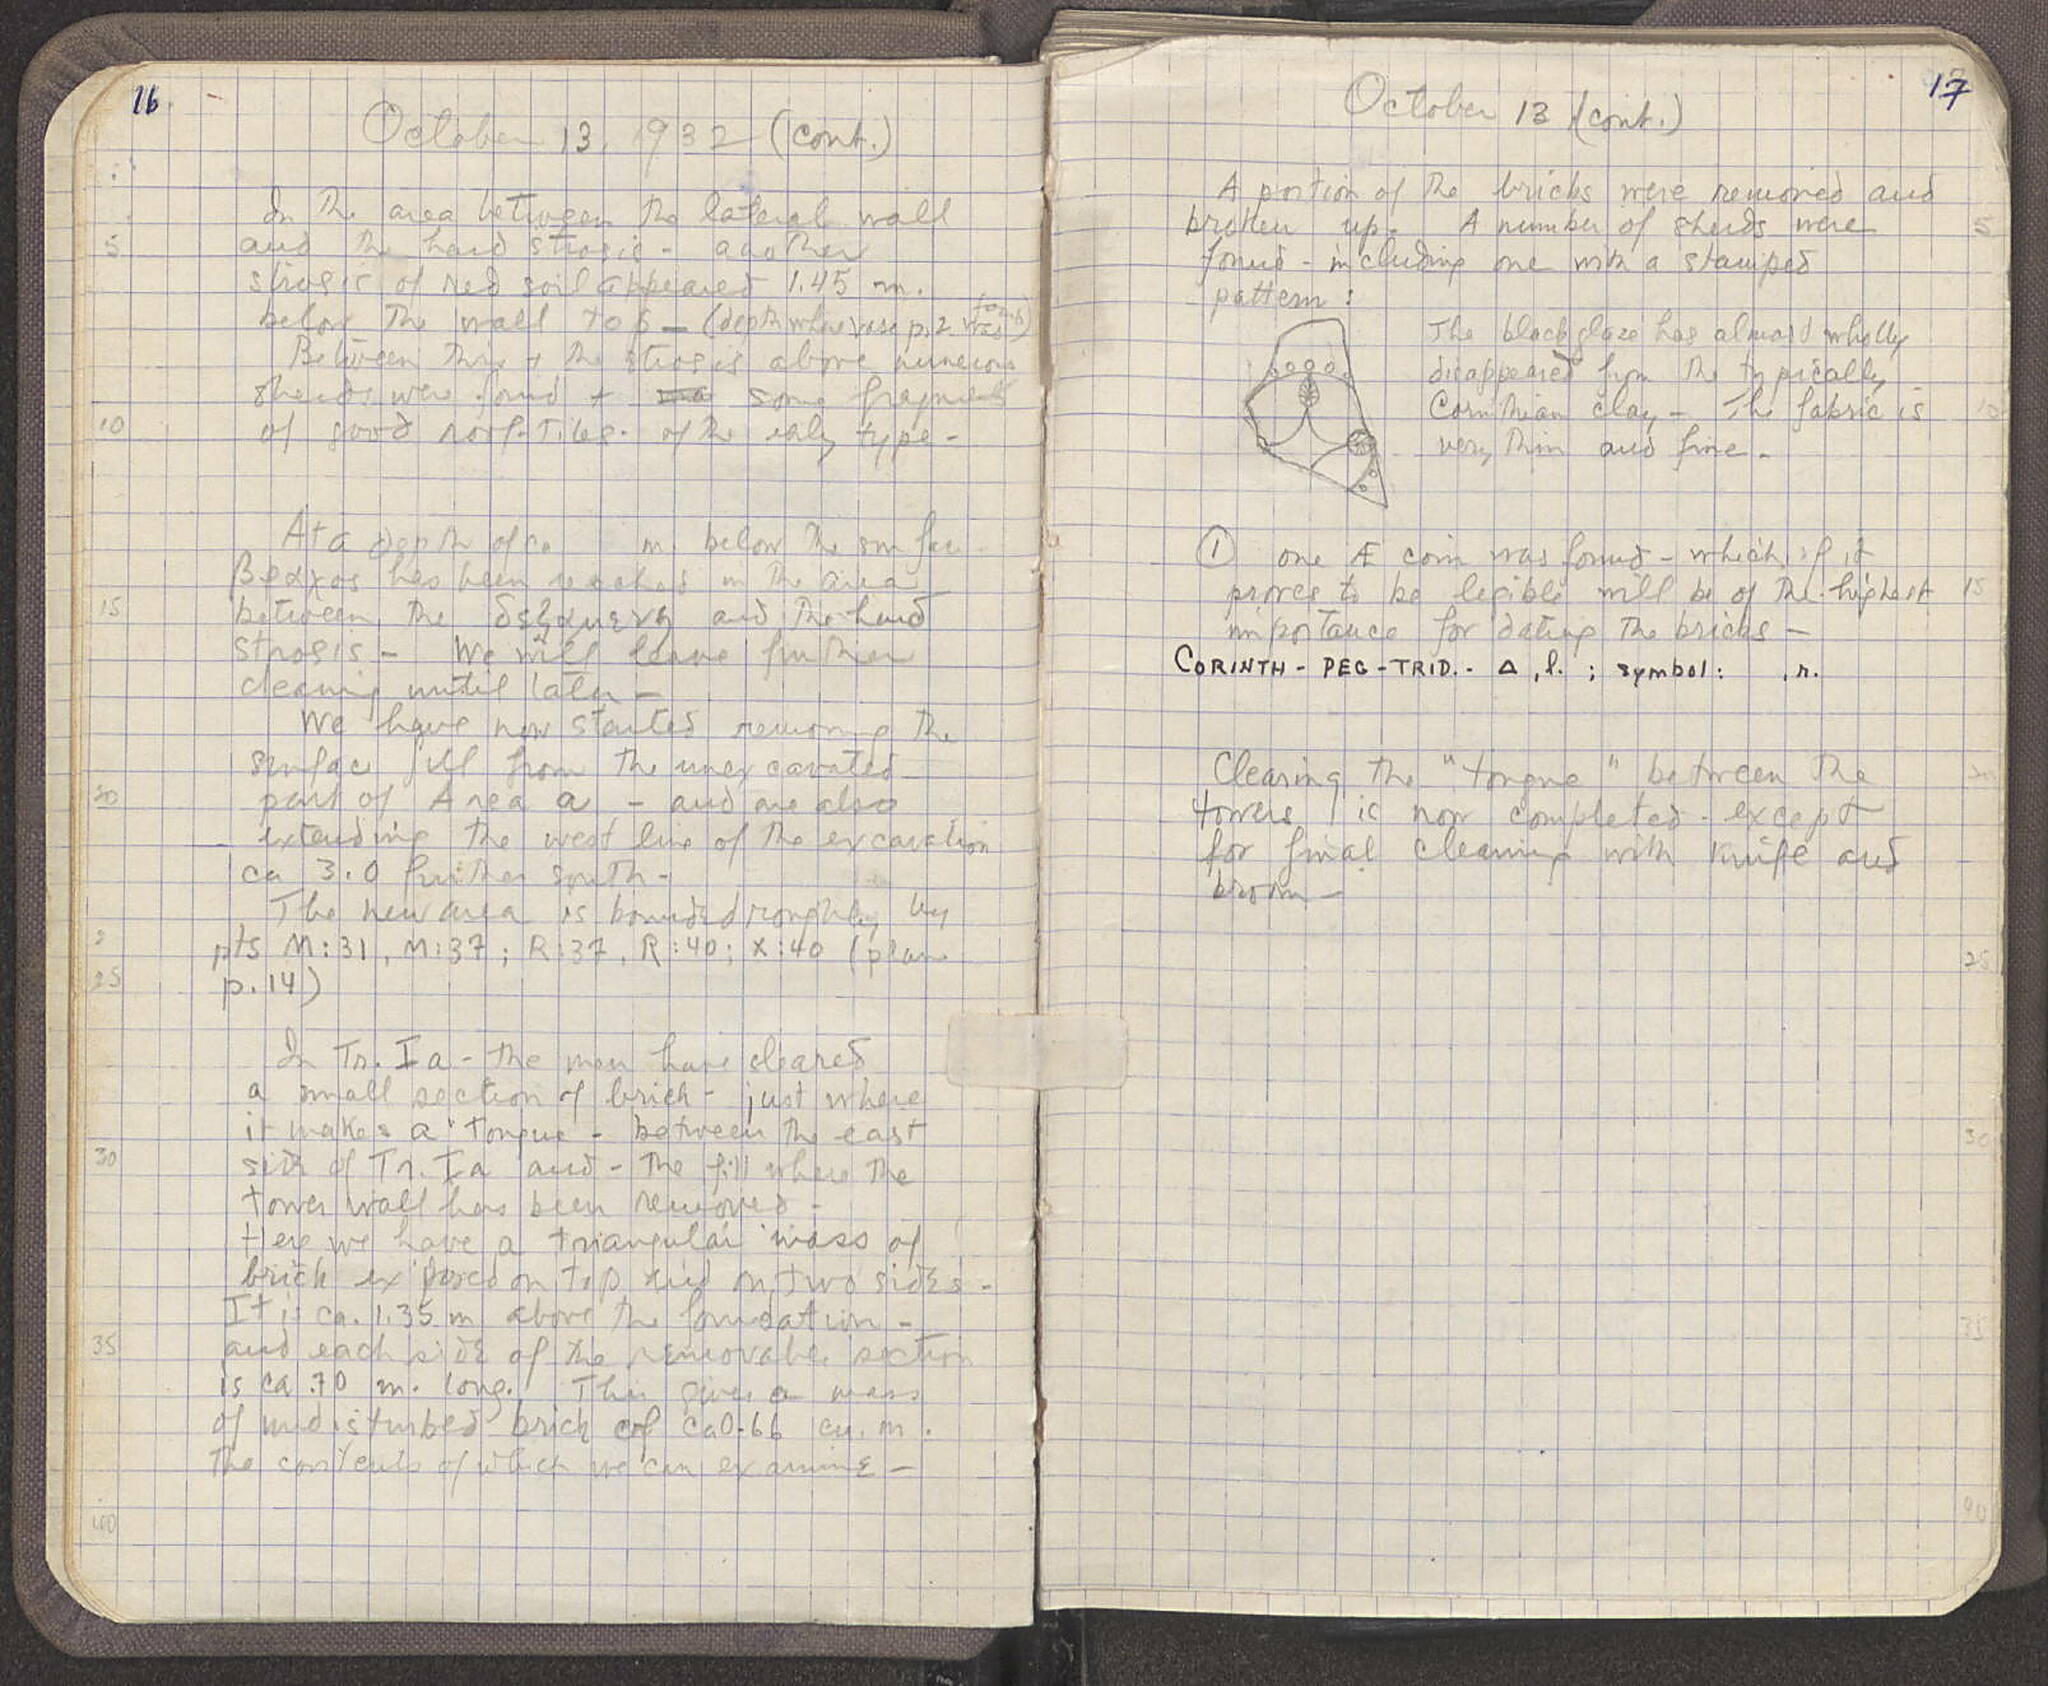 16
October 13, 1932 (cont.)
In the area between the lateral wall
5
and the hard strosis - another
strosis of red soil appeared 1.45 m.
below the wall top - (depth where vase p. 2 was found)
Between this + the strosis above numerous
sherds were found + some fragments
10
of good roof-tiles. of the early type -
At a depth of ca m. below the surface
Βραχος has been reached in the area
15
between the δεξαμενη and the hard
strosis - We will leave further
cleaning until later -
We have now started removing the
surface fill from the unexcavated
20
part of Area a - and are also
extending the west line of the excavation
ca 3.0 further south -
The new area is bounded roughly by
pts M:31, M:37; R:37, R:40; X:40 (plan
25
p. 14)
In Tr. I a - the men have cleared
a small section of brick - just where
it makes a "tongue - between the east
30
side of Tr. Ia and - the fill where the
tower wall has been removed -
Here we have a triangular mass of
brick exposed on top and on two sides -
It is ca. 1.35 m above the foundation -
35
and each side of the removable section
is ca .70 m. long. This gives a mass
of undisturbed brick of ca 0.66 cu. m.
the contents of which we can examine -
40
17
October 13 (cont.)
A portion of the bricks were removed and
broken up. A number of sherds were
5
found - including one with a stamped
pattern:
The black glaze has almost wholly
disappeared from the typically
Corinthian clay - The fabric is
10
very thin and fine -
① one Æ coin was found - which, if it
proves to be legible will be of the highest
15
importance for dating the bricks -
CORINTH - PEG - TRID. - Δ, l. ; symbol: , r.
Clearing the "tongue" between the
20
towers is now completed - except
for final cleaning with knife and
broom -
25
30
35
40